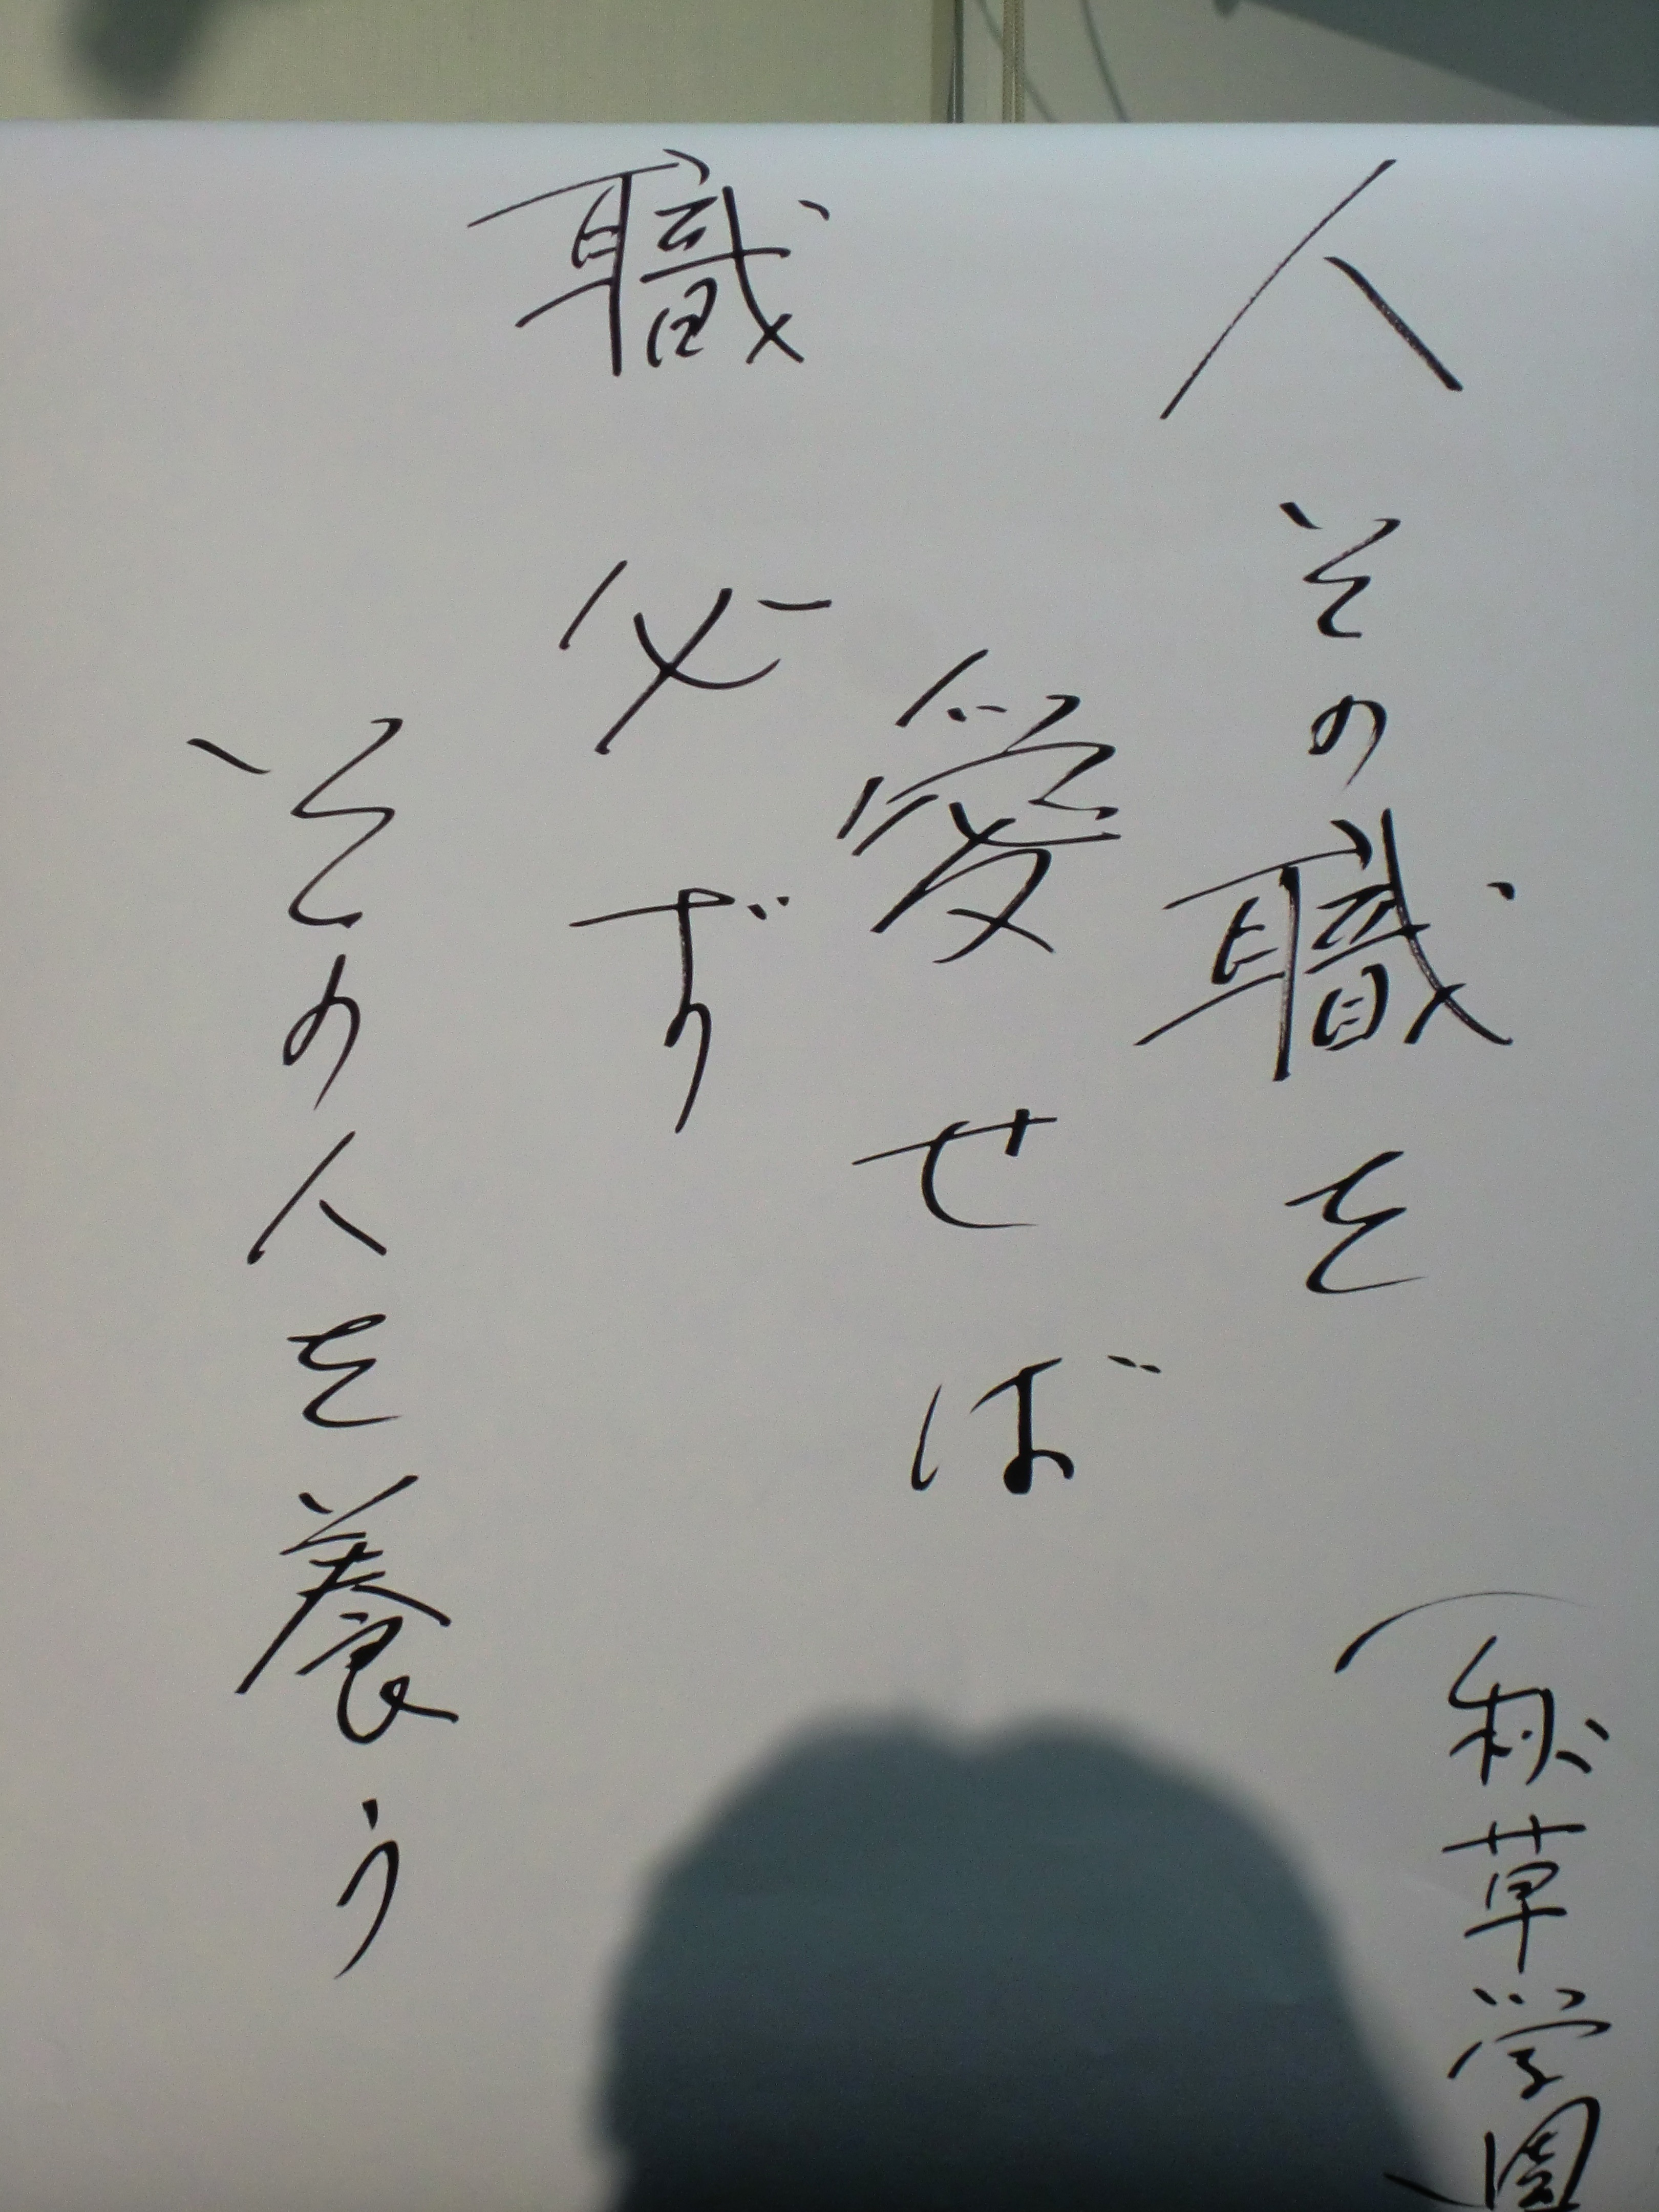 人その職を
愛せば
職必ず
その人を養う
(秋草学園